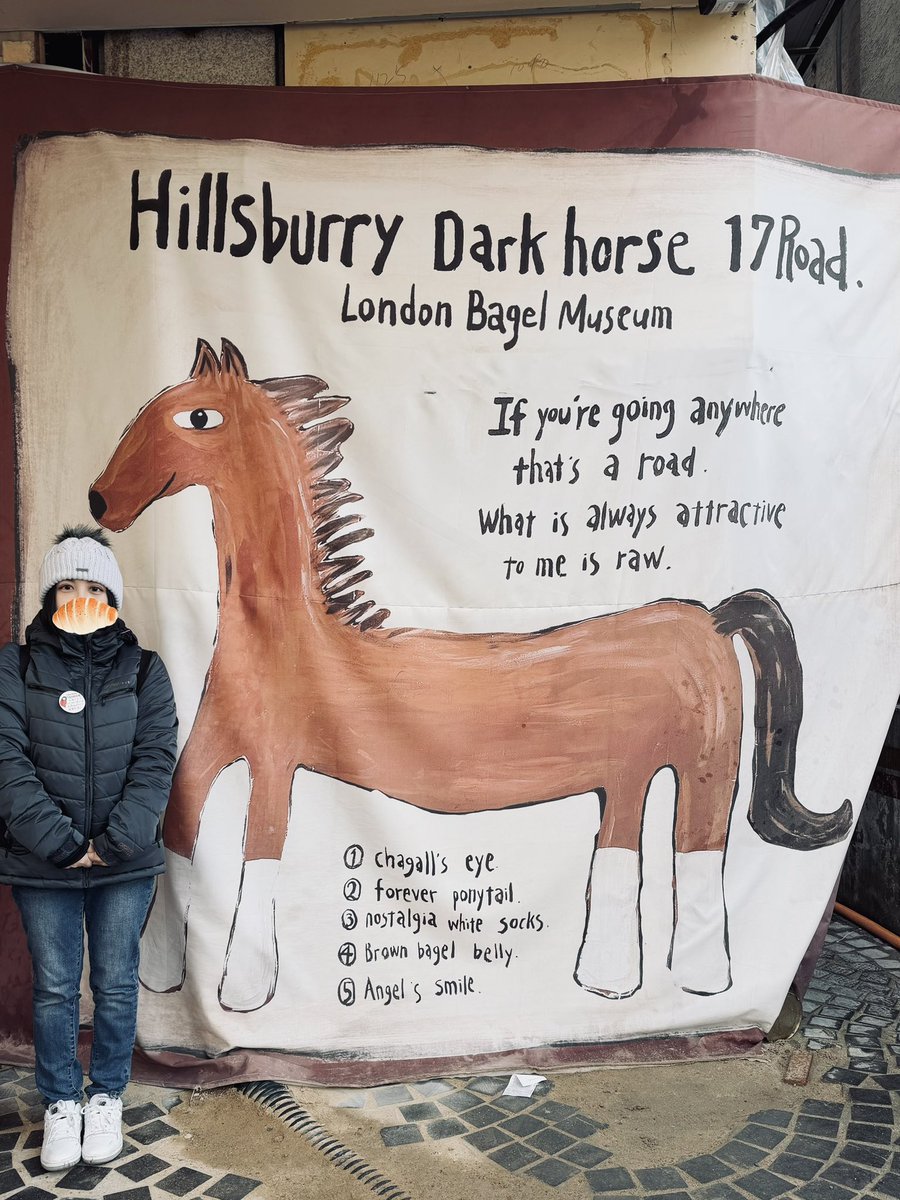 Hillsburry Dark horse 17 Road.
London Bagel Museum
If you're going anywhere
that's a road.
What is always attractive
to me is raw.
① chagall's eye.
② forever ponytail.
③ nostalgia white socks.
④ Brown bagel belly.
⑤ Angel's smile.